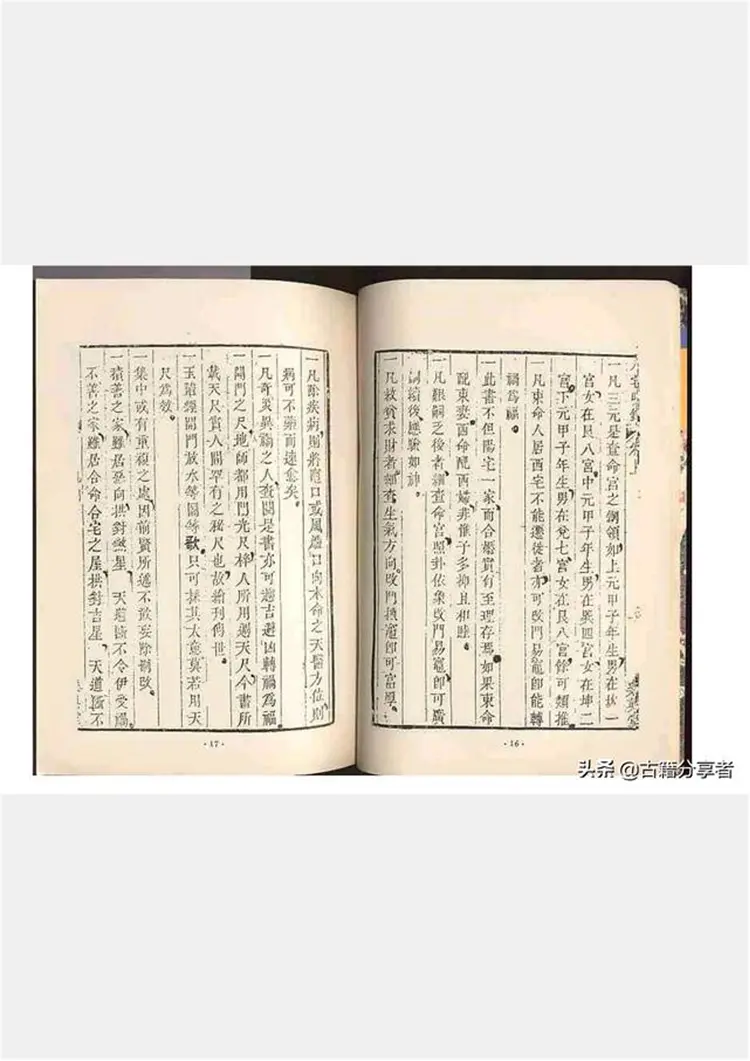 一凡三元是查命宮之綱領如上元甲子年生男在坎一
宮女在艮八宮中元甲子年生男在巽四宮女在坤二
宮下元甲子年生男在兌七宮女在艮八宮餘可類推
一凡東命人居西宅不能遷徙者亦可改門易竈卽能轉
禍爲福
一此書不但陽宅一家而合婚實有至理存焉如果東命
配東妻西命配西婦非惟子多抑且和睦
一凡艱嗣之後者細查命宮照卦依象改門易竈卽可廣
嗣續後應驗如神
一凡救貧求財者細查生氣方向改門換竈卽可富厚
·16·
一凡除疾病則將竈口或風爐口向本命之天醫方位則
病可不藥而速愈矣
一凡奇災異禍之人查閱是書亦可趨吉避凶轉禍爲福
一開門之尺地師都用門光尺梓人所用週天尺今書所
載天尺實人間罕有之秘尺也故繪刊傳世
一玉輦經開門放水等圖等歌只可採其大意莫若用天
尺爲效
一集中或有重複之處因前賢所遞不敢妄除刪改
一積善之家雖居惡向拱對煞星 天道斷不令伊受禍
不善之家雖居合命合宅之屋拱對吉星 天道斷不
·17·
头条 @古籍分享者